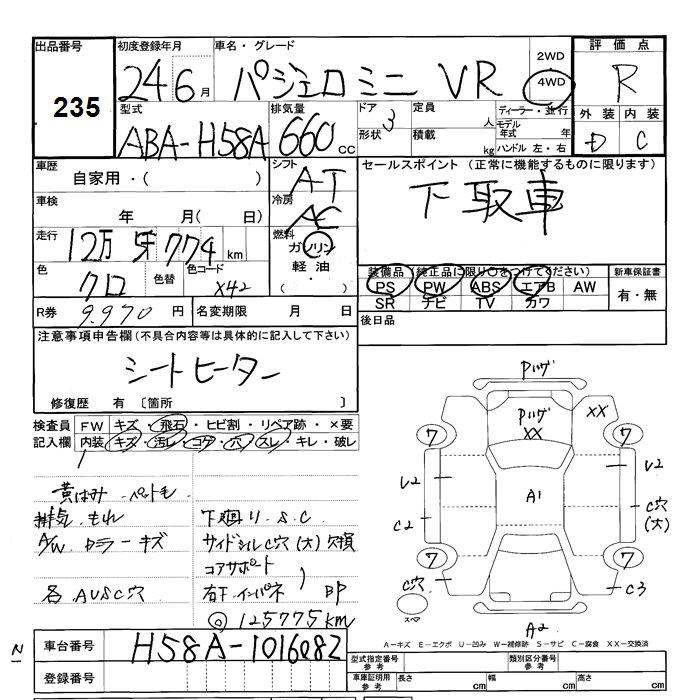 出品番号
235
初度登録年月
24 6 月
車名・グレード
パジェロミニ VR
2WD
4WD
評価点
R
型式
ABA-H58A
排気量
660 cc
ドア
3
形状
定員
人
積載
kg
ディーラー・並行
モデル年式 年
ハンドル 左・右
外装 内装
D C
車歴
自家用・( )
シフト
AT
セールスポイント (正常に機能するものに限ります)
下取車
車検
年 月( 日)
冷房
AC
走行
12万 5千 774 km
燃料
ガソリン
軽油・
( )
色
クロ
色替
色コード
X42
装備品 (純正品に限り○をつけてください)
PS PW ABS エアB AW
SR ナビ TV カワ
新車保証書
有・無
R券 9.970 円
名変期限 月 日
後日品
注意事項申告欄(不具合内容等は具体的に記入して下さい)
シートヒーター
修復歴 有 〔箇所 〕
検査員 FW キズ・飛石・ヒビ割・リペア跡・×要
記入欄 内装 キズ・汚レ・コゲ・穴・スレ・キレ・破レ
黄ばみ・ペットモ
排気 もれ
A/W カラーキズ
各 AUSC穴
下廻り.S.C
サイドシルC穴(大)欠損
コアサポート
右下インパネ 凹
◎125775km
Pハゲ
Pハゲ
XX
XX
7
7
U2
V2
A1
C2
C穴
(大)
7
7
C穴
C3
スペア
A2
A-キズ E-エクボ U-凹み W-補修跡 S-サビ C-腐食 XX-交換済
N
車台番号 H58A-1016082
登録番号
型式指定番号 参考
類別区分番号 参考
車庫証明用 参考
長さ cm
幅 cm
高さ cm